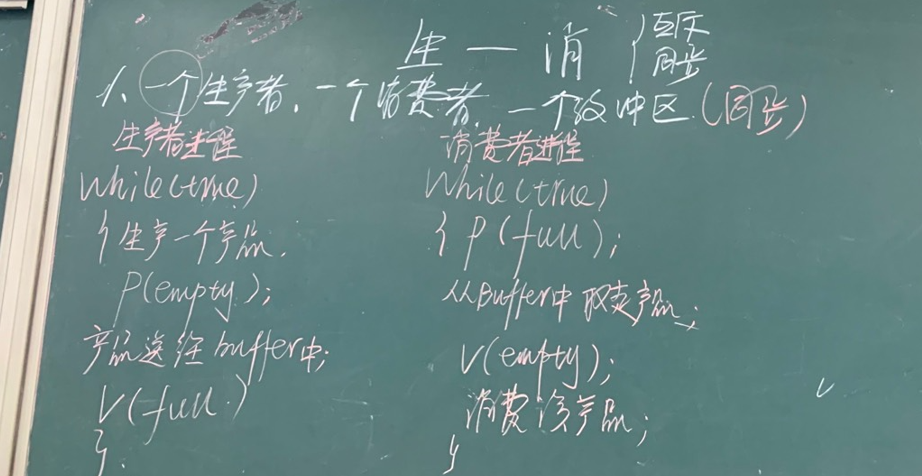 生一消 {互斥
同步
1、一个生产者、一个消费者、一个缓冲区(同步)
生产者进程
while(true)
{生产一个产品.
P(empty);
产品送往buffer中;
V(full)
}.
消费者进程
while(true)
{P(full);
从Buffer中取走产品;
V(empty);
消费该产品;
}